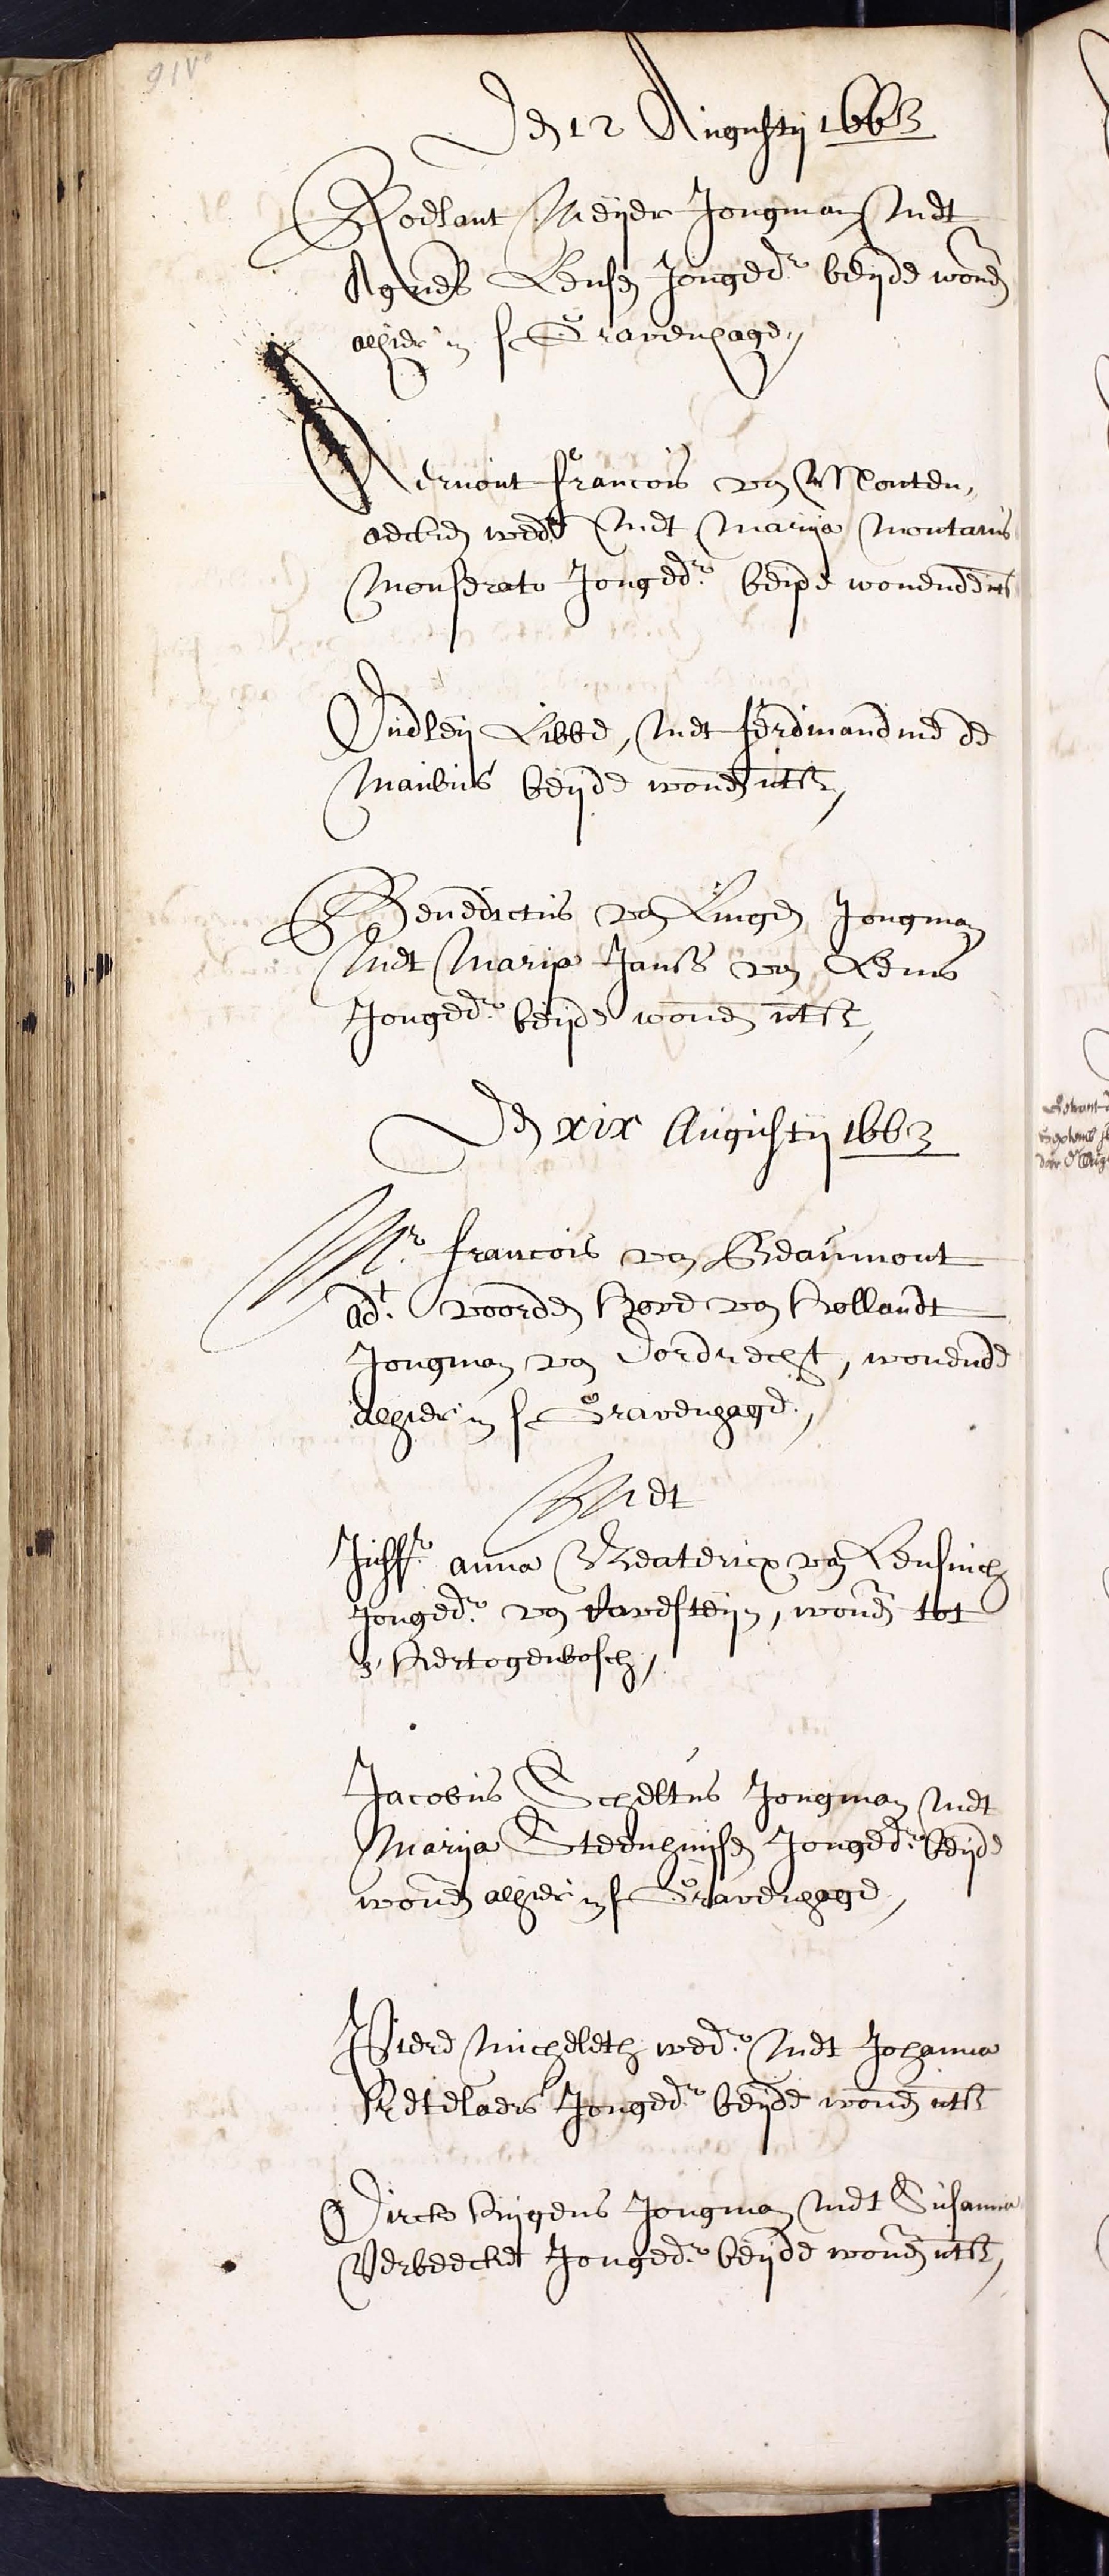 91v°
Den 12 Augustij 1663
Roelant Meijer Jongman Met
Agnes Lensen Jongedr. beijde wonen
alhier in s Gravenhage,
Aernout francois van Mouten,
aecken wedr. Met Marija Montanis
Monserato Jongedr. beijde wonende uts
Dudleij Libbe, Met ferdinandine de
Maubus beijde wonen uts,
Benedictus van Lingen Jongman
Met Marija Janss van Lens
Jongedr. beijde wonen uts,
Den xix Augustij 1663
Mr. francois van Beaumont
adt. voorden Hove van Hollandt
Jongman van Dordrecht, wonende
alhier in s Gravenhage,
Met
Juffr. anna Beaterix van Lensinch
Jongedr. van Ravesteijn, wonen tot
s' Hertogenbosch,
Jacobus Scheltus Jongman Met
Marija Steenhuijsen Jongedr. beijde
wonen alhier in s Gravenhage,
Piere Micheleth wedr. Met Johanna
Ketelaers Jongedr. beijde wonen uts
Dirck Huijgens Jongman Met Susanna
Verbeecke Jongedr. beijde wonen uts,